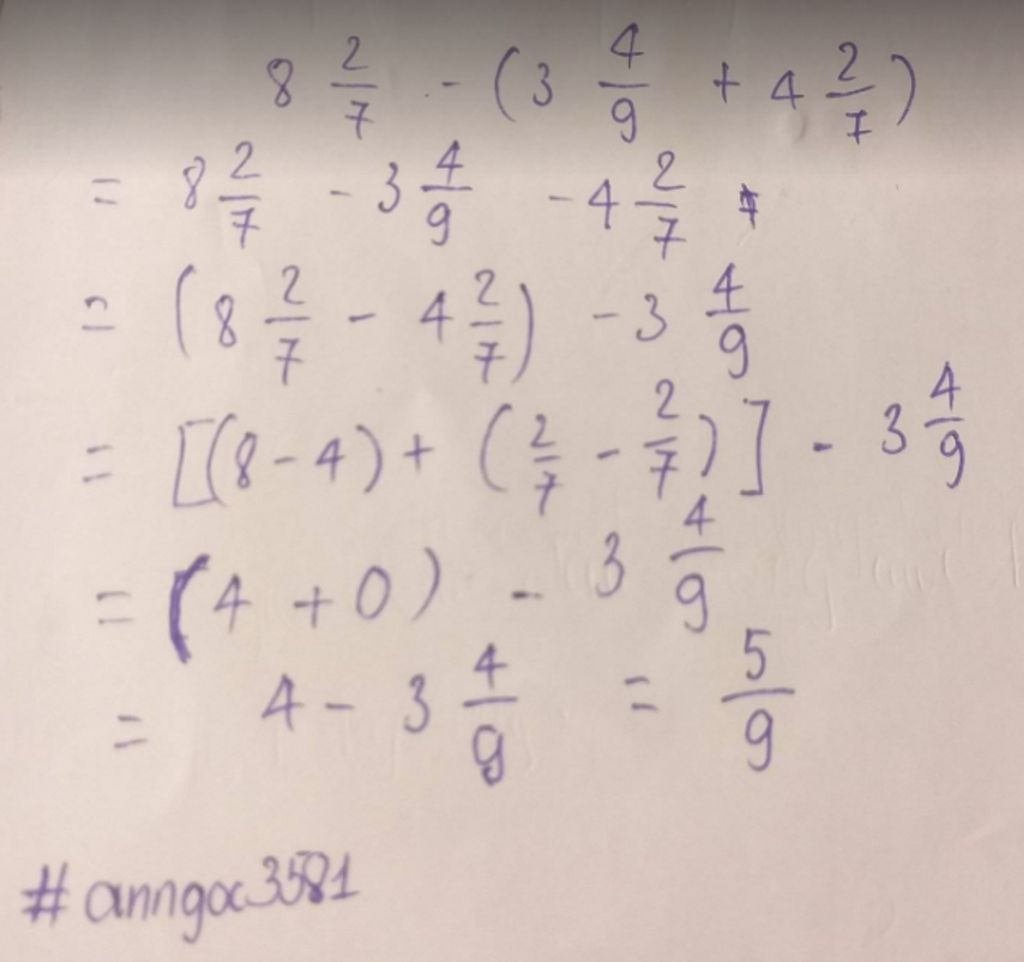 8 2/7 - (3 4/9 + 4 2/7)
= 8 2/7 - 3 4/9 - 4 2/7
= (8 2/7 - 4 2/7) - 3 4/9
= [(8 - 4) + (2/7 - 2/7)] - 3 4/9
= (4 + 0) - 3 4/9
= 4 - 3 4/9 = 5/9
#anngoc3581